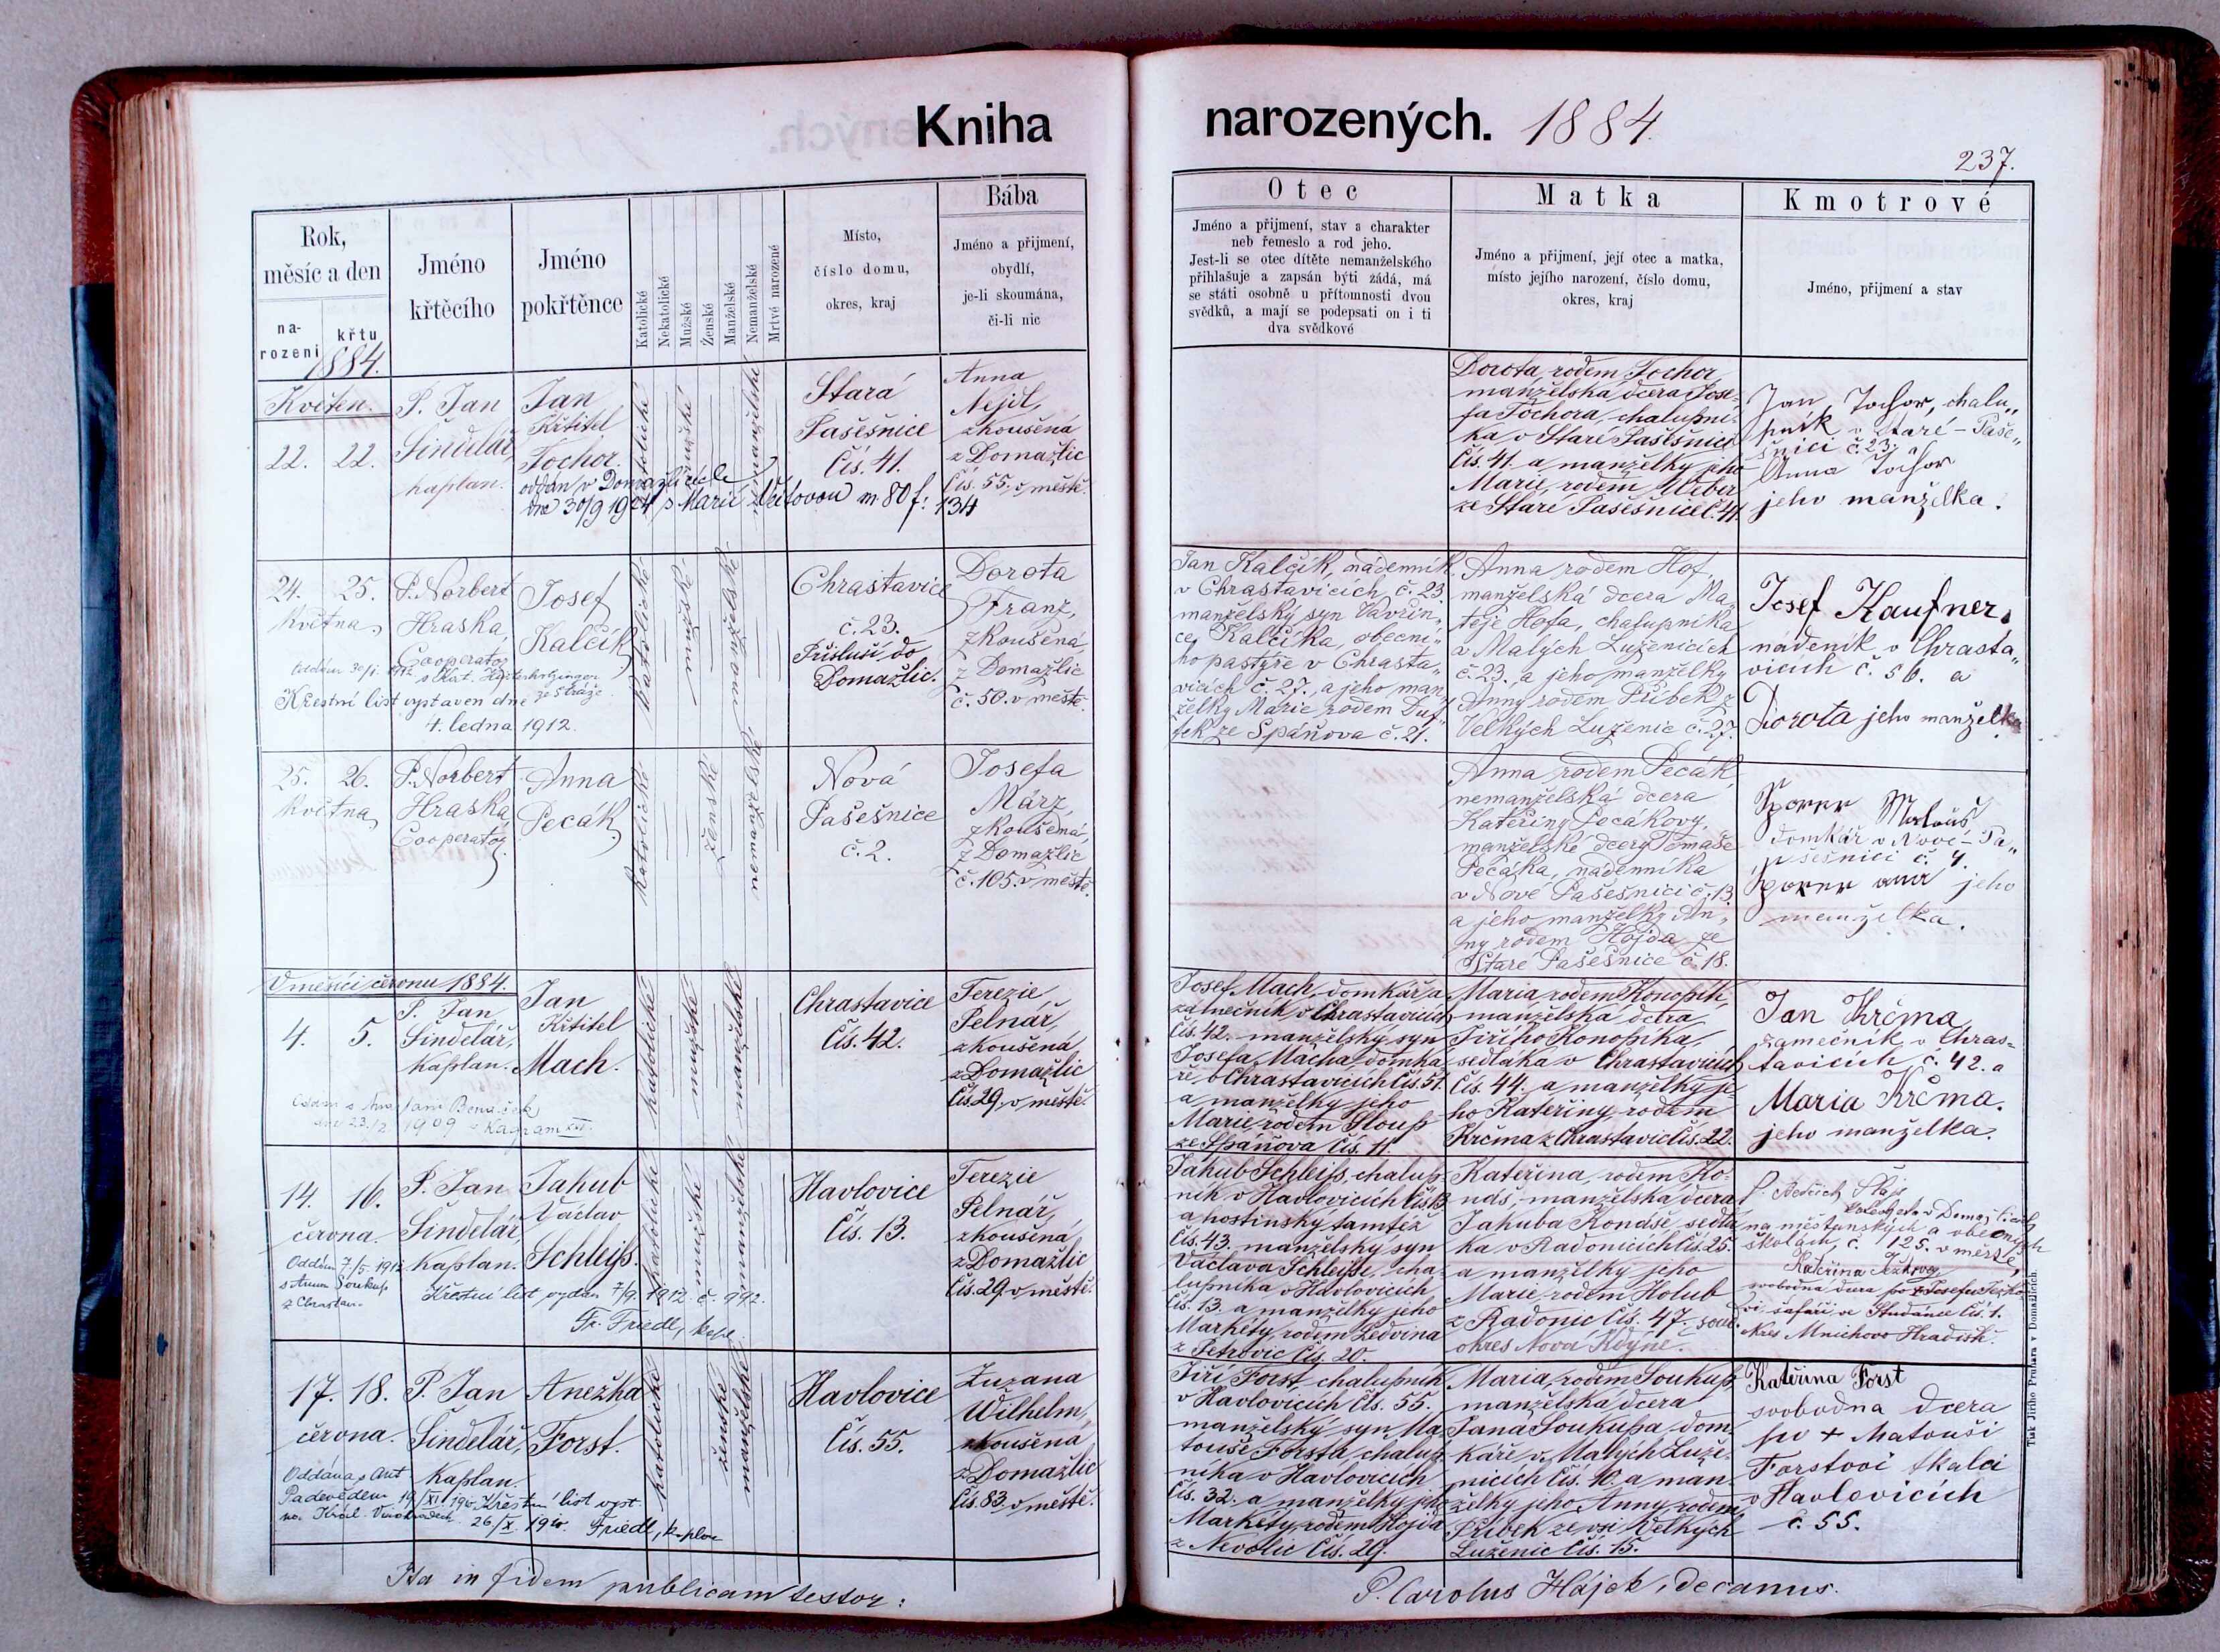 Kniha
narozených. 1884.
237.
Rok,
měsíc a den
na-
rození
křtu
1884.
Jméno
křtěcího
Jméno
pokřtěnce
Katolické
Nekatolické
Mužské
Ženské
Manželské
Nemanželské
Mrtvě narozené
Místo,
číslo domu,
okres, kraj
Bába
Jméno a přijmení,
obydlí,
je-li skoumána,
či-li nic
Otec
Jméno a přijmení, stav a charakter
neb řemeslo a rod jeho.
Jest-li se otec dítěte nemanželského
přihlašuje a zapsán býti žádá, má
se státi osobně u přítomnosti dvou
svědků, a mají se podepsati on i ti
dva svědkové
Matka
Jméno a přijmení, její otec a matka,
místo jejího narození, číslo domu,
okres, kraj
Kmotrové
Jméno, přijmení a stav
Květen.
22. 22.
P. Jan
Šindelář,
kaplan.
Jan
Křtitel
Tochor.
oddán v Domažlicích
dne 30/9 1924 s Marií Vítovou m 80 f: 134
katolické
mužské
nemanželské
Stará
Pašešnice
Čís. 41.
Anna
Nejdl,
zkoušená
z Domažlic
Čís. 55. v městě.
Dorota, rodem Tochor,
manželská dcera Jose-
fa Tochora, chalupní-
ka v Staré Pašešnici
Čís. 41. a manželky jeho
Marie, rodem Weber
ze Staré Pašešnice č. 41.
Jan Tochor, chalu„
pník v Staré-Paše„
šnici č. 23. a
Anna Tochor
jeho manželka.
24. 25.
května
P. Norbert
Hraska,
Cooperator
Josef
Kalčík
Oddán 30/1. 1912
s Kat.
ze Stráže
Křestní list vystaven dne
4. ledna 1912.
katolické
mužské
manželské
Chrastavice
č. 23.
Přísluší do
Domažlic.
Dorota
Franz,
zkoušená,
z Domažlic
č. 50. v městě.
Jan Kalčík, nádenník
v Chrastavicích č. 23.
manželský syn Vavřin„
ce Kalčíka, obecní„
ho pastýře v Chrasta„
vicích č. 27. a jeho man„
želky Marie rodem Duf„
fek ze Spáňova č. 21.
Anna rodem Hof,
manželská dcera Ma„
těje Hofa, chalupníka
v Malých Luženicích
č. 23. a jeho manželky
Anny rodem Příbek z
Velkých Luženic č. 27.
Josef Kaufner,
nádeník v Chrasta„
vicích č. 56. a
Dorota jeho manželka
25. 26.
května
P. Norbert
Hraska,
Cooperator
Anna
Pecák
katolické
ženské
nemanželské
Nová
Pašešnice
č. 2.
Josefa
März,
zkoušená,
z Domažlic
č. 105. v městě.
Anna rodem Pecák
nemanželská dcera
Kateřiny Pecákovy,
manželské dcery Tomáše
Pecáka, nádenníka
v Nové Pašešnici č. 13.
a jeho manželky An„
ny rodem Hojda ze
Staré Pašešnice č. 18.
Matouš
domkář v Nové-Pa„
šešnici č. 4.
jeho
manželka.
V měsíci červnu 1884.
4. 5.
P. Jan
Šindelář,
kaplan.
Jan
Křtitel
Mach.
dne 23./2 1909 v Kagram XXI.
katolické
mužské
manželské
Chrastavice
Čís. 42.
Terezie
Pelnář,
zkoušená
z Domažlic
Čís. 29. v městě.
Josef Mach, domkář a
zámečník v Chrastavicích
Čís. 42. manželský syn
Josefa Macha, domka-
ře v Chrastavicích Čís. 51.
a manželky jeho
Marie rodem Sloup
ze Spáňova Čís. 11.
Maria, rodem Konopík,
manželská dcera
Jiřího Konopíka,
sedláka v Chrastavicích
Čís. 44. a manželky je-
ho Kateřiny, rodem
Krčma z Chrastavic Čís. 22.
Jan Krčma
zámečník v Chras-
tavicích č. 42. a
Maria Krčma.
jeho manželka.
14. 16.
června.
P. Jan
Šindelář,
kaplan.
Jakub
Václav
Schleiss.
Oddán 7./5. 1912
s Annou Soukup
z Chrastav.
Křestní list vydán 7/9. 1912. č. 992.
Fr. Friedl, kapl.
katolické
mužské
manželské
Havlovice
Čís. 13.
Terezie
Pelnář,
zkoušená
z Domažlic
Čís. 29. v městě.
Jakub Schleiss, chalup-
ník v Havlovicích Čís. 13.
a hostinský tamtéž
Čís. 43. manželský syn
Václava Schleisse, cha-
lupníka v Havlovicích
Čís. 13. a manželky jeho
Markéty, rodem Ledvina
z Petrovic Čís. 20.
Kateřina, rodem Ko-
náš, manželská dcera
Jakuba Konáše, sedlá-
ka v Radonicích Čís. 25.
a manželky jeho
Marie, rodem Holub
z Radonic Čís. 47. soud.
okres Nová Kdyně.
P. Bedřich
katecheta v Domažlicích
na měšťanských a obecných
školách, č. 125. v městě,
Kateřina
svobodná dcera po Josefu
šafáři ve Studánce Čís. 1.
okres Mnichovo Hradiště.
17. 18.
června.
P. Jan
Šindelář,
kaplan.
Anežka
Forst.
Oddána s Ant.
Padevědem 19/XI. 190 Křestní list vyst.
na Král. Vinohradech. 26./X. Friedl, kaplan
katolické
ženské
manželské
Havlovice
Čís. 55.
Zuzana
Wilhelm,
zkoušená
z Domažlic
Čís. 83. v městě.
Jiří Forst, chalupník
v Havlovicích Čís. 55.
manželský syn Ma-
touše Forsta, chalup-
níka v Havlovicích
Čís. 32. a manželky jeho
Markéty, rodem Hojda
z Nevolic Čís. 29.
Maria, rodem Soukup,
manželská dcera
Jana Soukupa, dom-
káře v Malých Luže-
nicích Čís. 10. a man-
želky jeho Anny, rodem
Příbek ze vsi Velkých
Luženic Čís. 15.
Kateřina Forst
svobodna dcera
po + Matouši
Forstovi tkalci
v Havlovicích
č. 55.
Tisk Jiřího Prunara v Domažlicích.
Ita in fidem publicam testor:
P. Carolus Hájek, decanus.